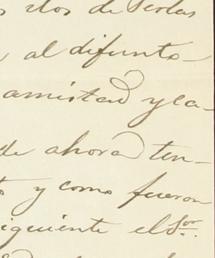 dos de Perlas
al difunto
amistad y ca-
de ahora ten-
y como fueron
siguiente el Sor.